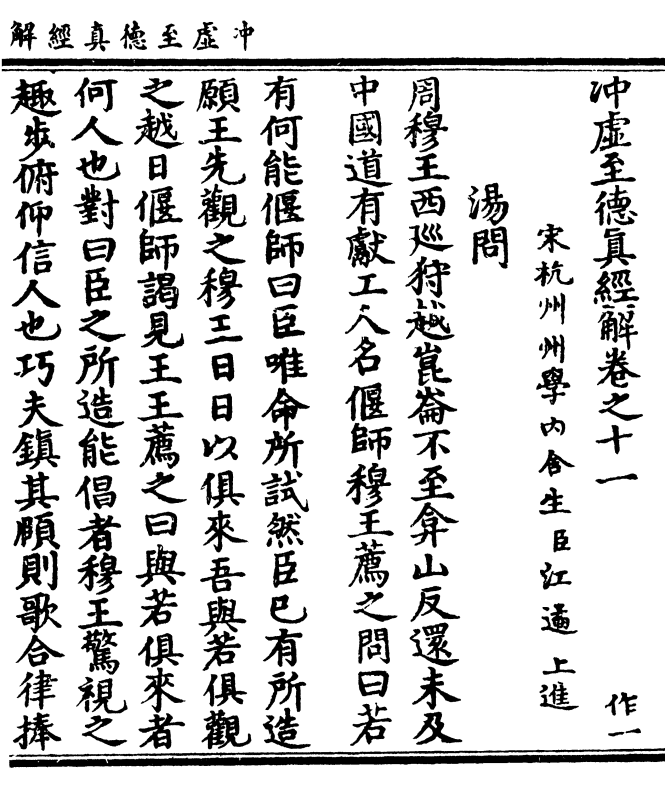 冲虛至德真經解
冲虛至德真經解卷之十一
作一
宋杭州州學內舍生臣江遹上進
湯問
周穆王西巡狩越崑崙不至弇山反還未及
中國道有獻工人名偃師穆王薦之問曰若
有何能偃師曰臣唯命所試然臣已有所造
願王先觀之穆王曰日以俱來吾與若俱觀
之越日偃師謁見王王薦之曰與若俱來者
何人也對曰臣之所造能倡者穆王驚視之
趣步俯仰信人也巧夫鎮其頤則歌合律捧